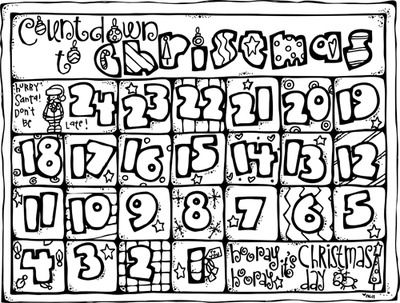 Countdown
to Christmas
"HURRY
Santa!
Don't
BE Late!
24 23 22 21 20 19
18 17 16 15 14 13 12
11 10 9 8 7 6 5
4 3 2 1
hooray
hooray it's
Christmas
day